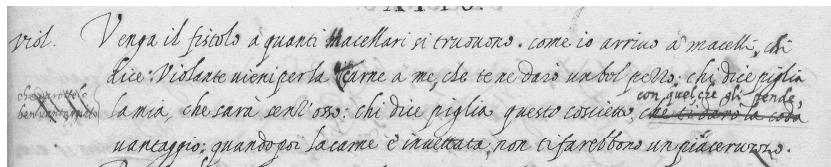 ATTO
Viol. Venga il fistolo a quanti macellari si truovono. come io arrivo a macelli, chi
dice: Violante vieni per la carne a me, che te ne darò un bel pezzo: chi dice piglia
la mia, che sarà senz'osso: chi dice piglia questo coscietto, con quel che gli pende, che ti darò la coda
vantaggio; quando poi la carne è invettata, non ti farebbono un piaceruzzo.